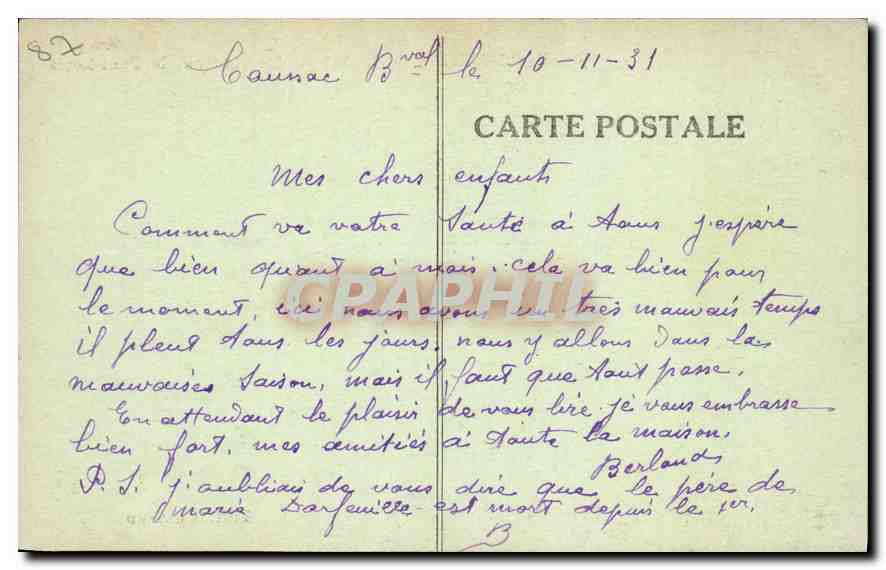 87
Coussac Bval le 10-11-31
CARTE POSTALE
Mes chers enfants
Comment va votre santé à tous j'espère
que bien quant à mois, cela va bien pour
le moment, ici nous avons un très mauvais temps
CPAPHIL
il pleut tous les jours, nous y allons dans la
mauvaises saison, mais il faut que tout passe.
En attendant le plaisir de vous lire je vous embrasse
bien fort, mes amitiés à toute la maison.
Berlonds
P.S. j'oubliais de vous dire que le père de
marie Darfeuille est mort depuis le 1er.
B